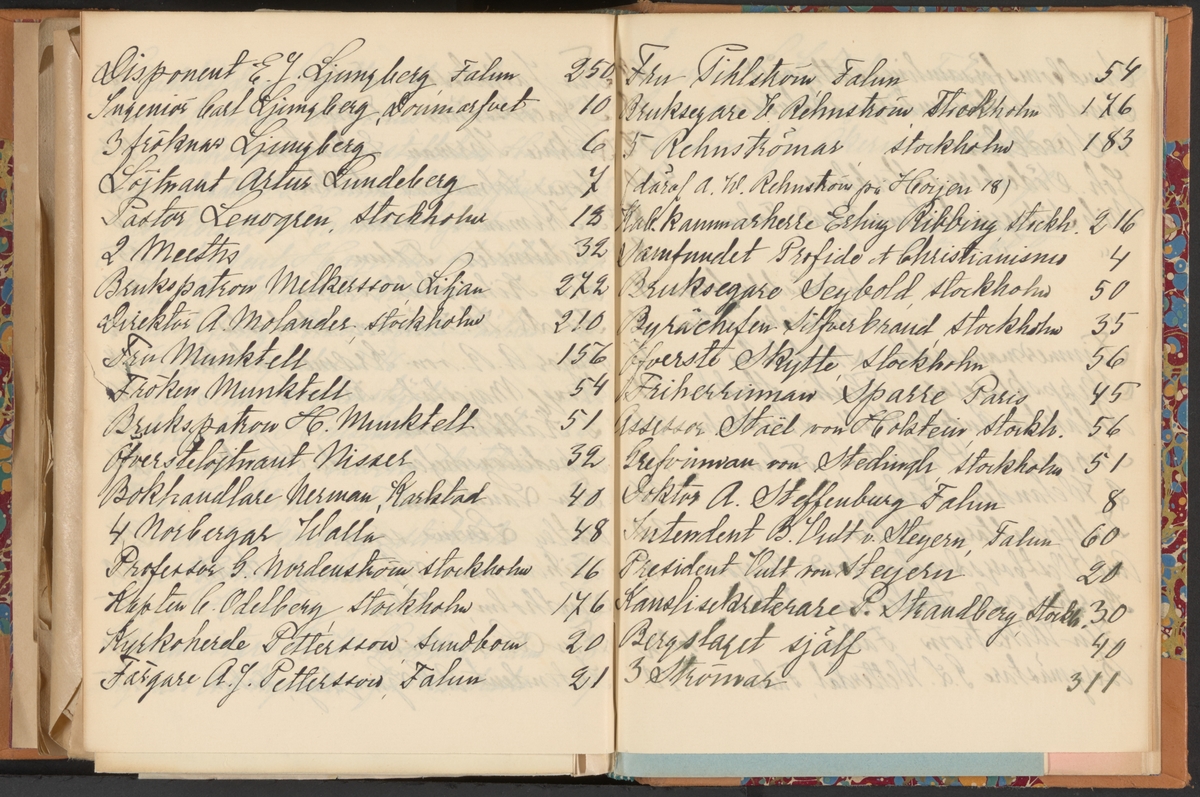 Disponent E. J. Ljungberg Falun 250
Ingeniör Carl Ljungberg, Domnarfvet 10
3 fröknar Ljungberg 6
Löjtnant Artur Lundeberg 7
Pastor Lenogren, Stockholm 18
2 Meeths 32
Brukspatron Melkersson, Liljan 272
Direktör A. Molander, Stockholm 210
Fru Munktell 156
Fröken Munktell 54
Brukspatron H. Munktell 51
Öfverstelöjtnant Nisser 32
Bokhandlare Nerman, Karlstad 40
4 Norbergar Walla 48
Professor G. Nordenström Stockholm 16
Kapten C. Odelberg Stockholm 176
Kyrkoherde Pettersson Sundborn 20
Färgare A. J. Pettersson, Falun 21
Fru Pihlström Falun 54
Bruksegare C. Rehnström Stockholm 176
5 Rehnströmar Stockholm 183
(däraf A. W. Rehnström på Höijen 18)
Kab. kammarherre Erling Ribbing Stockh. 216
Samfundet Profide et Christianismo 4
Bruksegare Seybold Stockholm 50
Byråchefen Silfverbrand Stockholm 35
Öfverste Skytte Stockholm 56
Friherrinnan Sparre Paris 45
Assessor Staël von Holstein, Stockh. 56
Grefvinnan von Stedingk Stockholm 51
Doktor A. Steffenburg Falun 8
Intendent B. Vult v. Steyern, Falun 60
President Vult von Steyern 20
Kanslisekreterare P. Strandberg Stockh. 30
Bergslaget själf 40
3 Strömar 311